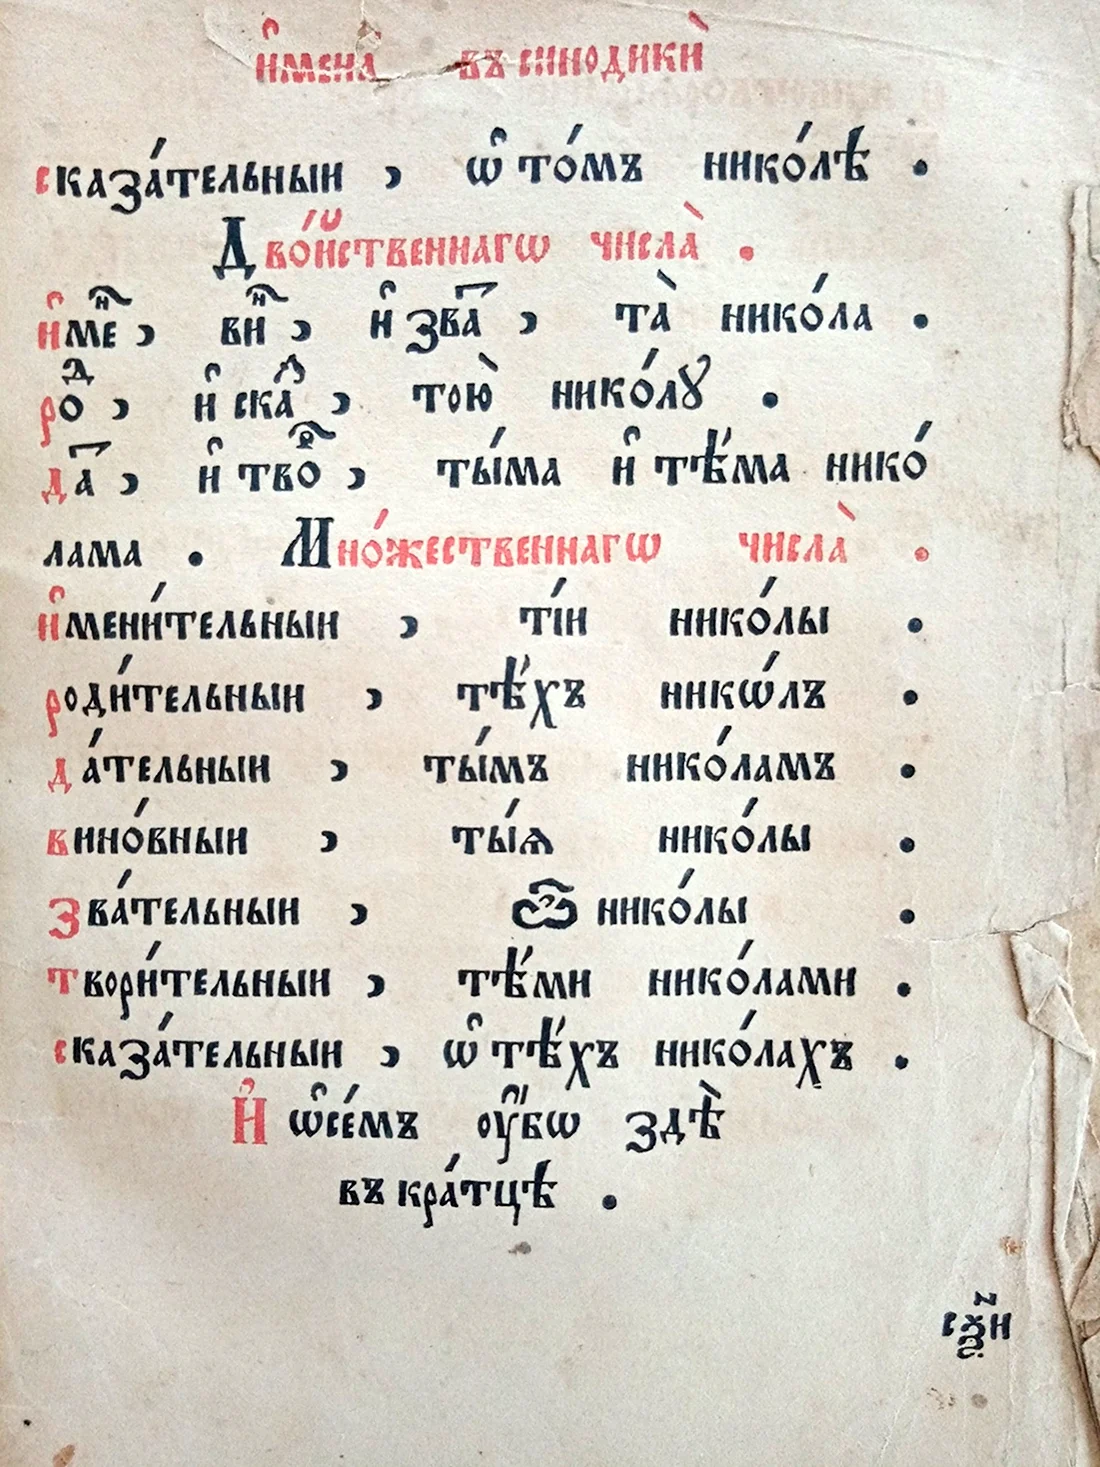 и҆мена̀ въ синодикѝ
сказа́тельныи , ѡ҆ то́мъ нико́лѣ .
Дво́и҆ственнагѡ числа̀ .
и҆меⷩ҇ , виⷩ҇ , и҆ зва҃ , та̀ нико́ла .
роⷣ , и҆ скаⷥ , тою̀ нико́лꙋ .
да҃ , и҆ твоⷬ҇ , ты́ма и҆ тѣ́ма нико́
лама . Мно́жественнагѡ числа̀ .
и҆мени́тельныи , ті́и нико́лы .
роди́тельныи , тѣ́хъ никѡ́лъ .
да́тельныи , ты́мъ нико́ламъ .
вино́вныи , ты́ѧ нико́лы .
зва́тельныи , ѽ нико́лы .
твори́тельныи , тѣ́ми нико́лами .
сказа́тельныи , ѡ҆ тѣ́хъ нико́лахъ .
И҆ ѡ҆се́мъ ᲂу҆́бѡ здѣ̀
въ кра́тцѣ .